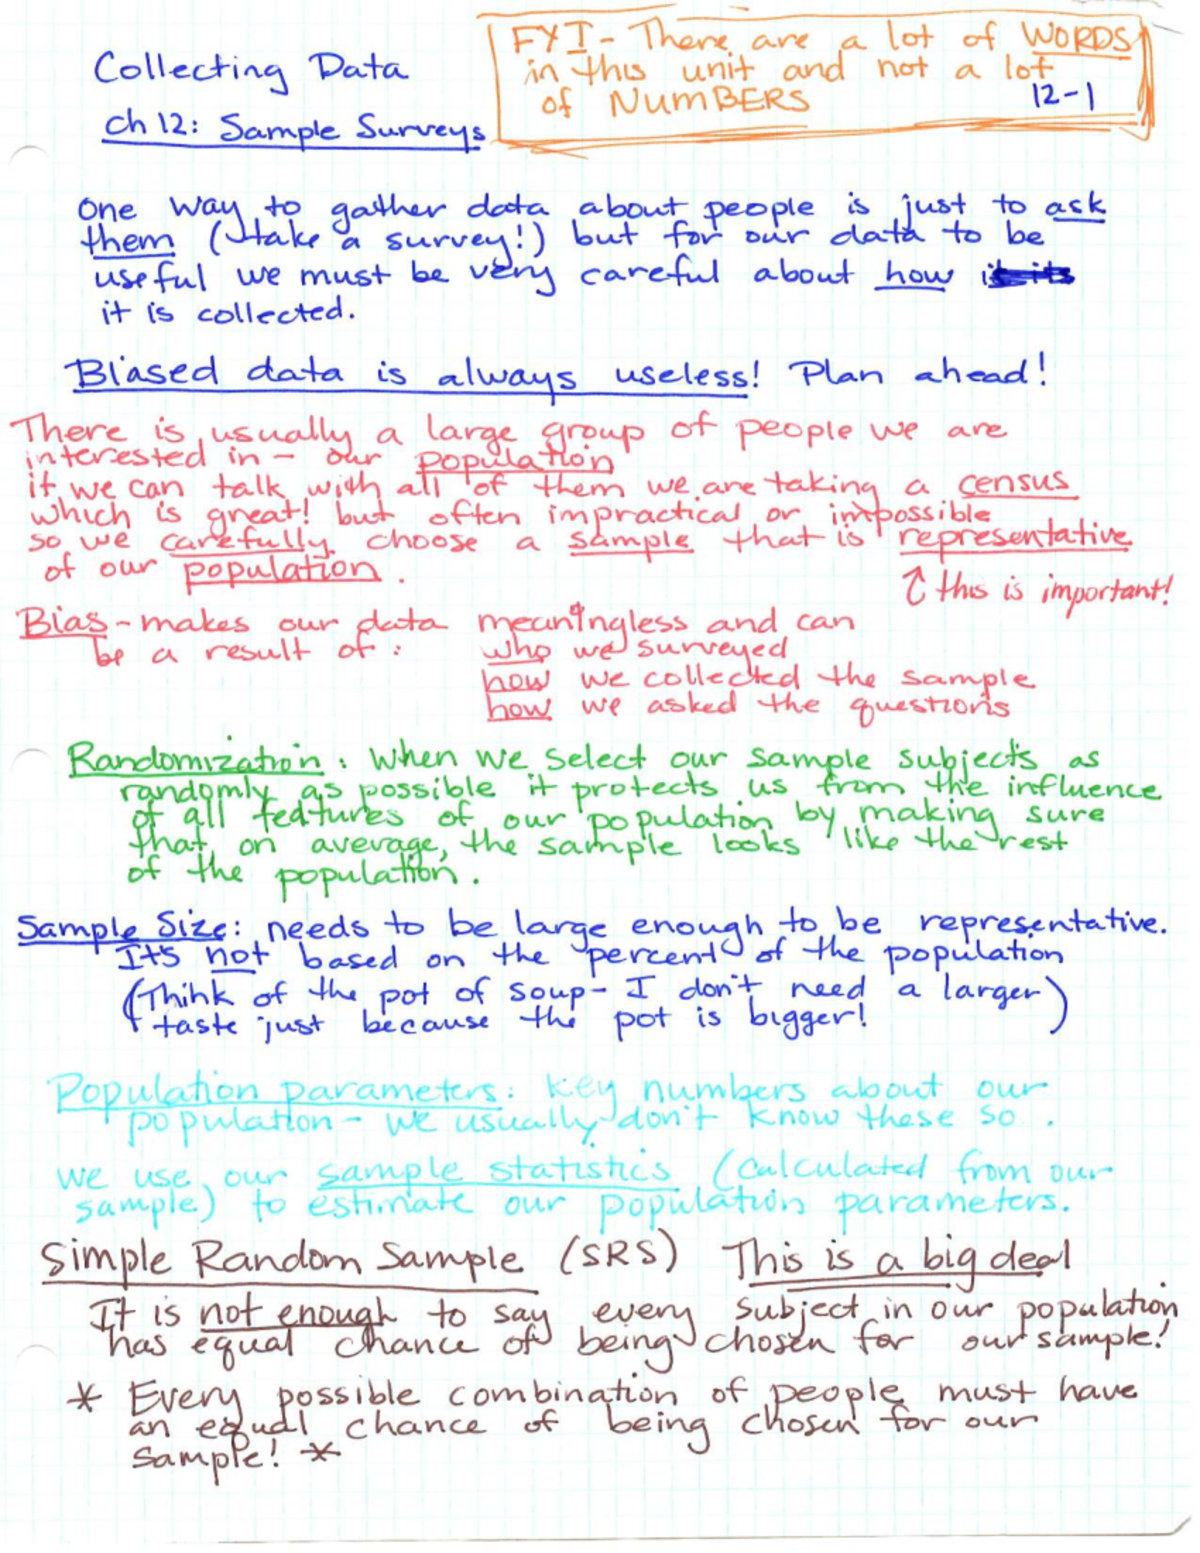 Collecting Data
Ch 12: Sample Surveys
FYI - There are a lot of WORDS
in this unit and not a lot
of NUMBERS
12-1
One way to gather data about people is just to ask
them (take a survey!) but for our data to be
useful we must be very careful about how
it is collected.
Biased data is always useless! Plan ahead!
There is usually a large group of people we are
interested in - our population
if we can talk with all of them we are taking a census
which is great! but often impractical or impossible
so we carefully choose a sample that is representative
of our population.
↑ this is important!
Bias - makes our data meaningless and can
be a result of: who we surveyed
how we collected the sample
how we asked the questions
Randomization: When we select our sample subjects as
randomly as possible it protects us from the influence
of all features of our population by making sure
that, on average, the sample looks like the rest
of the population.
Sample Size: needs to be large enough to be representative.
It's not based on the percent of the population
(Think of the pot of soup - I don't need a larger
taste just because the pot is bigger!)
Population parameters: key numbers about our
population - we usually don't know these so .
we use our sample statistics (calculated from our
sample) to estimate our population parameters.
Simple Random Sample (SRS) This is a big deal
It is not enough to say every subject in our population
has equal chance of being chosen for our sample!
* Every possible combination of people must have
an equal chance of being chosen for our
sample! *